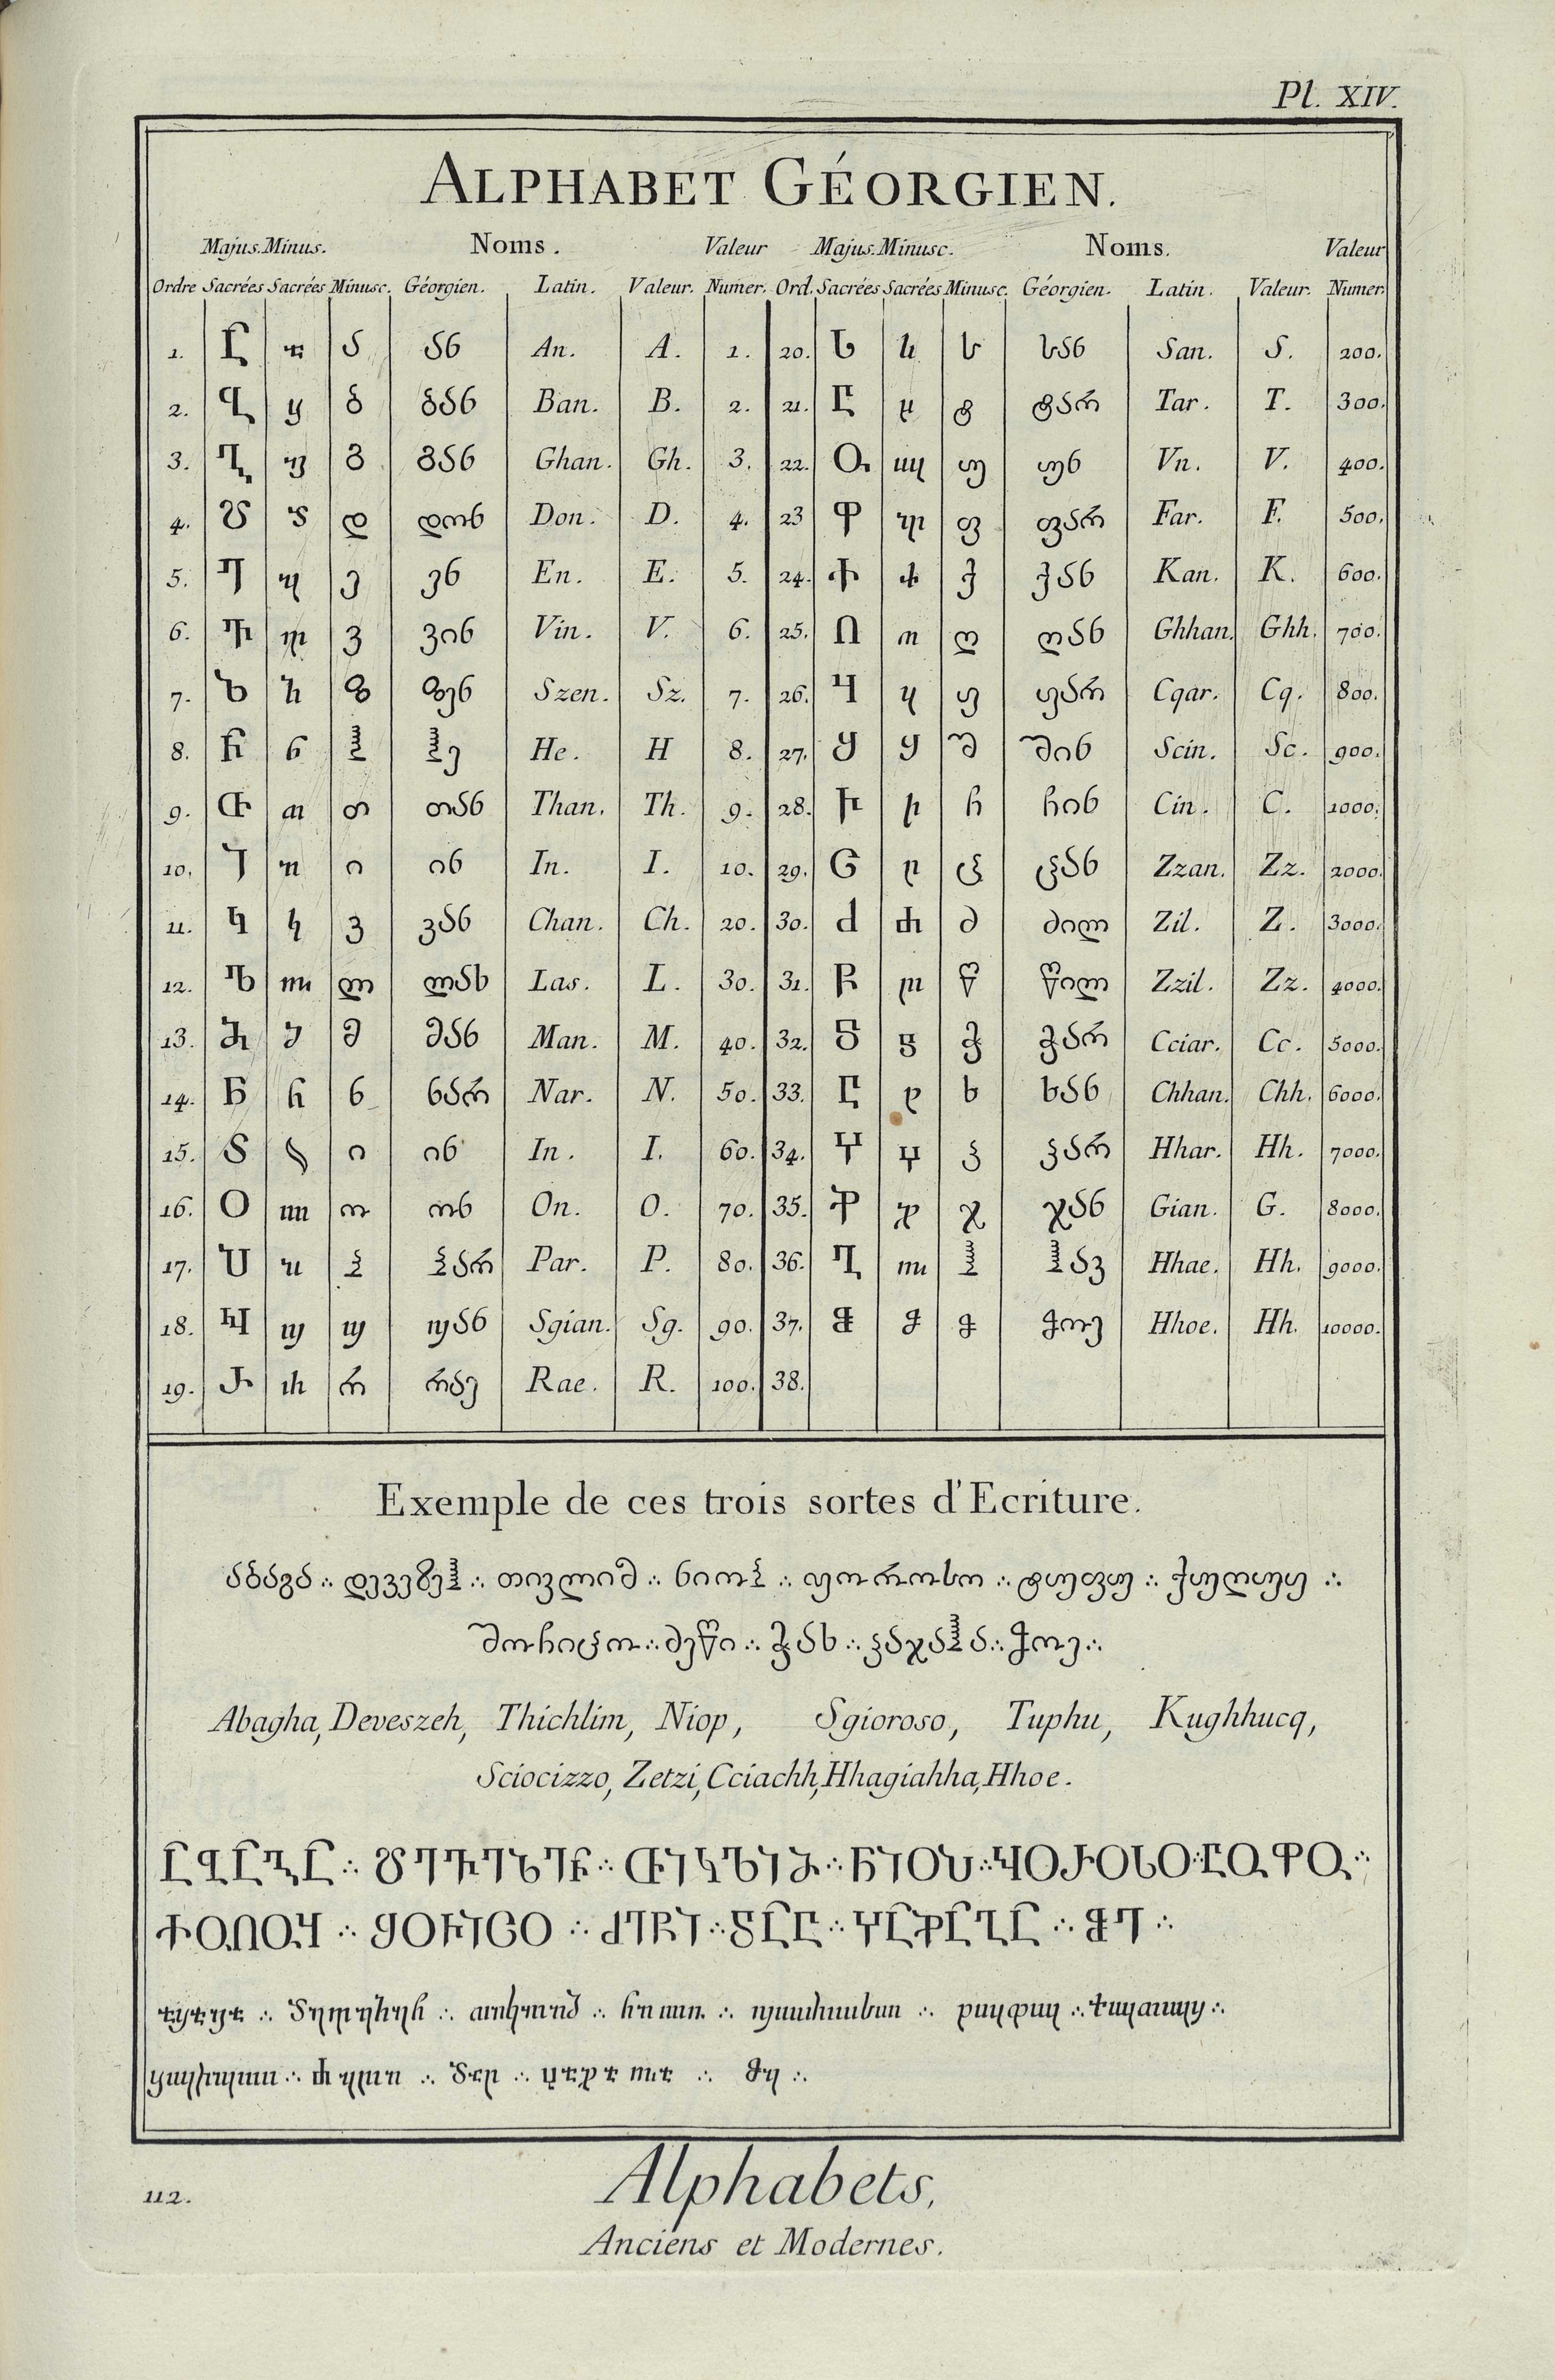 Pl. XIV.
ALPHABET GÉORGIEN.
Majus. Minus. Noms. Valeur Majus. Minusc. Noms. Valeur
Ordre Sacrées Sacrées Minusc. Géorgien. Latin. Valeur. Numer. Ord. Sacrées Sacrées Minusc. Géorgien. Latin. Valeur. Numer.
1. Ⴀ ⴀ ა ან An. A. 1. 20. Ⴑ ⴑ ს სან San. S. 200.
2. Ⴁ ⴁ ბ ბან Ban. B. 2. 21. Ⴒ ⴒ ტ ტარ Tar. T. 300.
3. Ⴂ ⴂ გ გან Ghan. Gh. 3. 22. Ⴓ ⴓ უ უნ Vn. V. 400.
4. Ⴃ ⴃ დ დონ Don. D. 4. 23 Ⴔ ⴔ ფ ფარ Far. F. 500.
5. Ⴄ ⴄ ე ენ En. E. 5. 24. Ⴕ ⴕ ქ ქან Kan. K. 600.
6. Ⴅ ⴅ ვ ვინ Vin. V. 6. 25. Ⴖ ⴖ ღ ღან Ghhan. Ghh. 700.
7. Ⴆ ⴆ ზ ზენ Szen. Sz. 7. 26. Ⴗ ⴗ ყ ყარ Cqar. Cq. 800.
8. Ⴡ ⴡ ჱ ჱე He. H 8. 27. Ⴘ ⴘ შ შინ Scin. Sc. 900.
9. Ⴇ ⴇ თ თან Than. Th. 9. 28. Ⴙ ⴙ ჩ ჩინ Cin. C. 1000.
10. Ⴈ ⴈ ი ინ In. I. 10. 29. Ⴚ ⴚ ც ცან Zzan. Zz. 2000.
11. Ⴉ ⴉ კ კან Chan. Ch. 20. 30. Ⴛ ⴛ ძ ძილ Zil. Z. 3000.
12. Ⴊ ⴊ ლ ლას Las. L. 30. 31. Ⴜ ⴜ წ წილ Zzil. Zz. 4000.
13. Ⴋ ⴋ მ მან Man. M. 40. 32. Ⴝ ⴝ ჭ ჭარ Cciar. Cc. 5000.
14. Ⴌ ⴌ ნ ნარ Nar. N. 50. 33. Ⴞ ⴞ ხ ხან Chhan. Chh. 6000.
15. Ⴢ ⴢ ი ინ In. I. 60. 34. Ⴤ ⴤ ჴ ჴარ Hhar. Hh. 7000.
16. Ⴍ ⴍ ო ონ On. O. 70. 35. Ⴟ ⴟ ჯ ჯან Gian. G. 8000.
17. Ⴎ ⴎ პ პარ Par. P. 80. 36. Ⴠ ⴠ ჱ ჱავ Hhae. Hh. 9000.
18. Ⴏ ⴏ ჟ ჟან Sgian. Sg. 90. 37. Ⴥ ⴥ ჵ ჵოე Hhoe. Hh. 10000.
19. Ⴐ ⴐ რ რაე Rae. R. 100. 38.
Exemple de ces trois sortes d'Ecriture.
აბაგა ∴ დევეზეჱ ∴ თიკლიმ ∴ ნიოპ ∴ ჟოროსო ∴ ტუფუ ∴ ქუღუყ ∴
შოჩიცო ∴ ძეწი ∴ ჭახ ∴ ჴაჯაჱა ∴ ჵოე ∴
Abagha, Deveszeh, Thichlim, Niop, Sgioroso, Tuphu, Kughhucq,
Sciocizzo, Zetzi, Cciachh, Hhagiahha, Hhoe.
ႠႡႠႢႠ ∴ ႣႤႥႤႦႤႡ ∴ ႧႨႩႪႨႫ ∴ ႬႨႭႮ ∴ ႯႭႰႭႱႭ ∴ ႲႳႴႳ ∴
ႵႳႶႳႷ ∴ ႸႭႹႨႺႭ ∴ ႻႤႼႨ ∴ ႽႠႾ ∴ ჄႠႿႠჀႠ ∴ ჅႤ ∴
ⴀⴁⴀⴂⴀ ∴ ⴃⴄⴅⴄⴆⴄⴡ ∴ ⴇⴈⴉⴊⴈⴋ ∴ ⴌⴈⴍⴎ ∴ ⴏⴍⴐⴍⴑⴍ ∴ ⴒⴓⴔⴓ ∴ ⴕⴓⴖⴓⴗ ∴
ⴘⴍⴙⴈⴚⴍ ∴ ⴛⴄⴜⴈ ∴ ⴝⴀⴞ ∴ ⴤⴀⴟⴀⴠⴀ ∴ ⴥⴄ ∴
112.
Alphabets,
Anciens et Modernes.